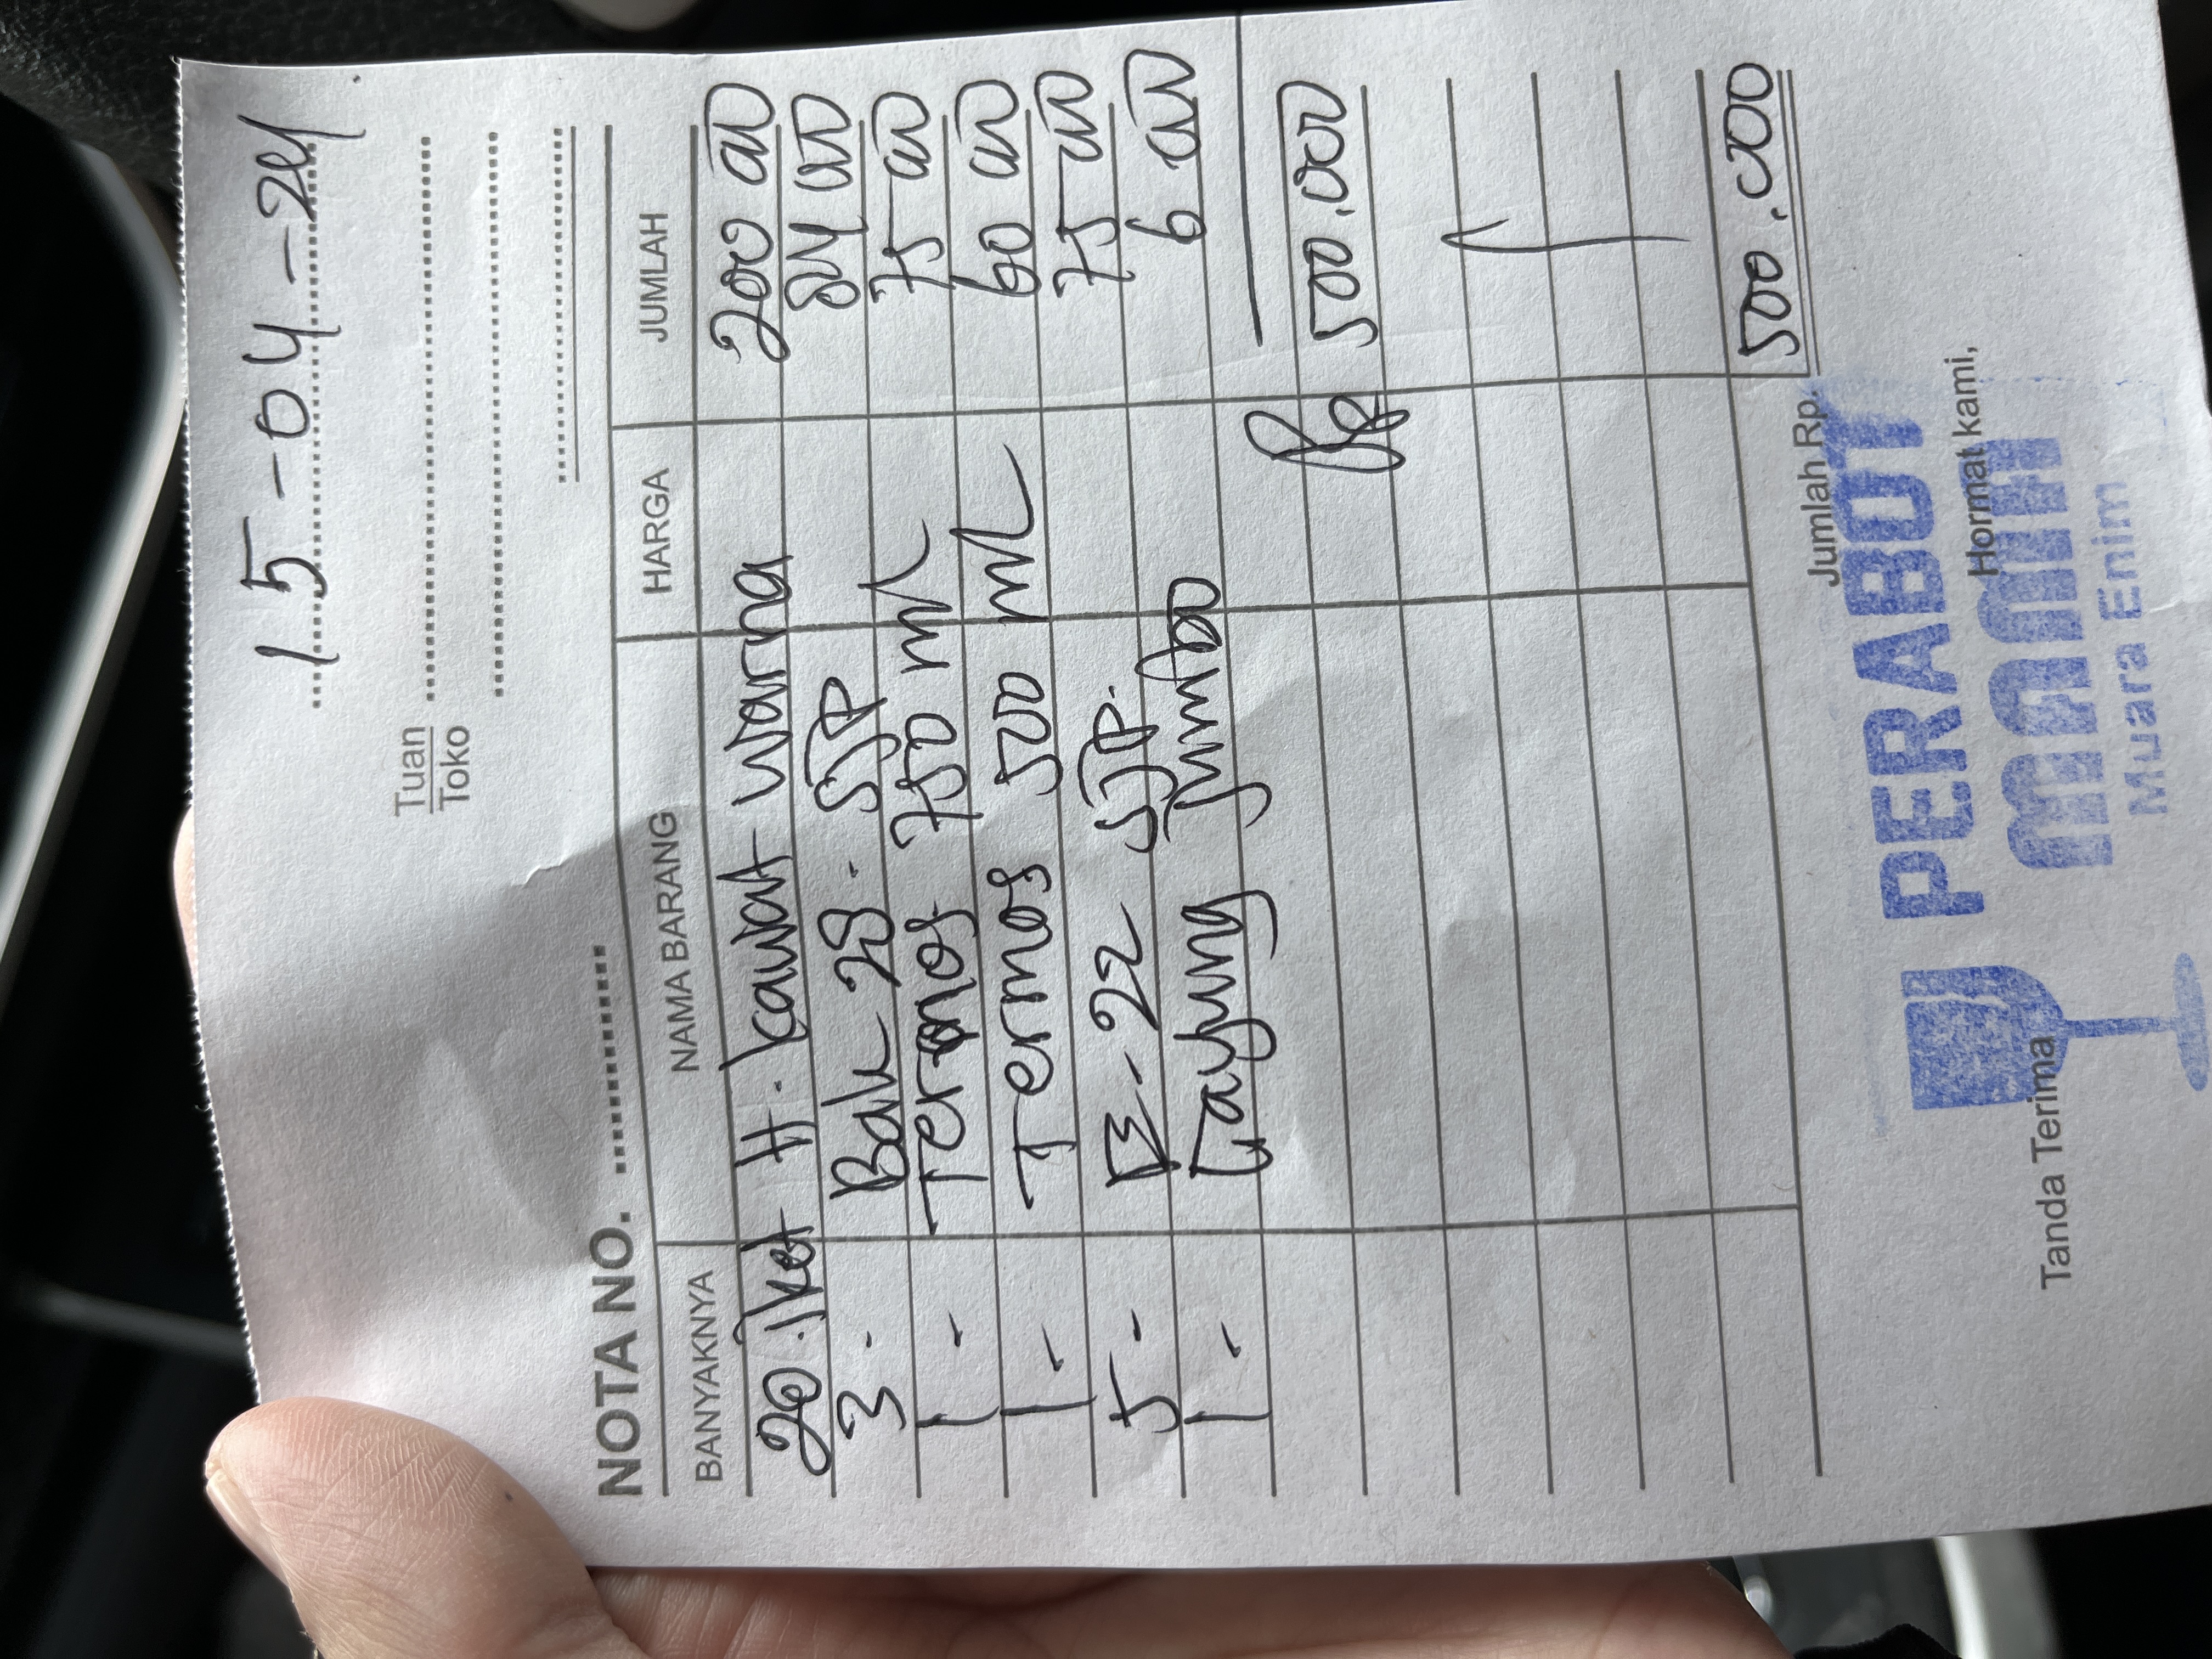 15-04-24
Tuan
Toko
NOTA NO.
BANYAKNYA NAMA BARANG HARGA JUMLAH
20.Iket H. kawat warna 200 000
3 - Bak 28. SJP 84 000
1 - Termos 750 ml 75 000
1 - Termos 500 ml 60 000
5 - B-22 SJP. 75 000
1 - Gayung Jumbo 6 000
Rp 500.000
Jumlah Rp. 500.000
Tanda Terima Hormat kami,
PERABOT
Muara Enim